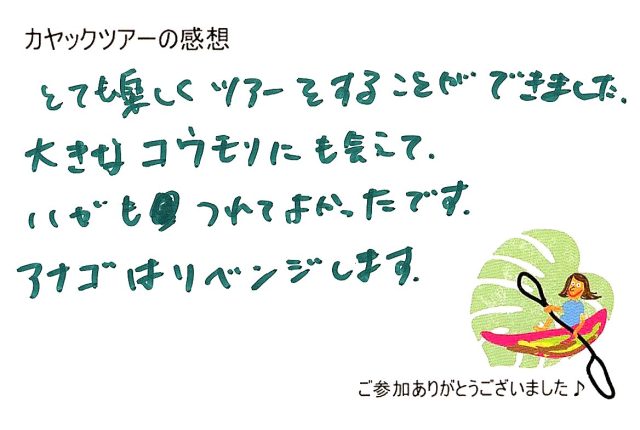 カヤックツアーの感想
とても楽しくツアーをすることができました。
大きなコウモリにも会えて、
ハゼもつれてよかったです。
アナゴはリベンジします。
ご参加ありがとうございました♪